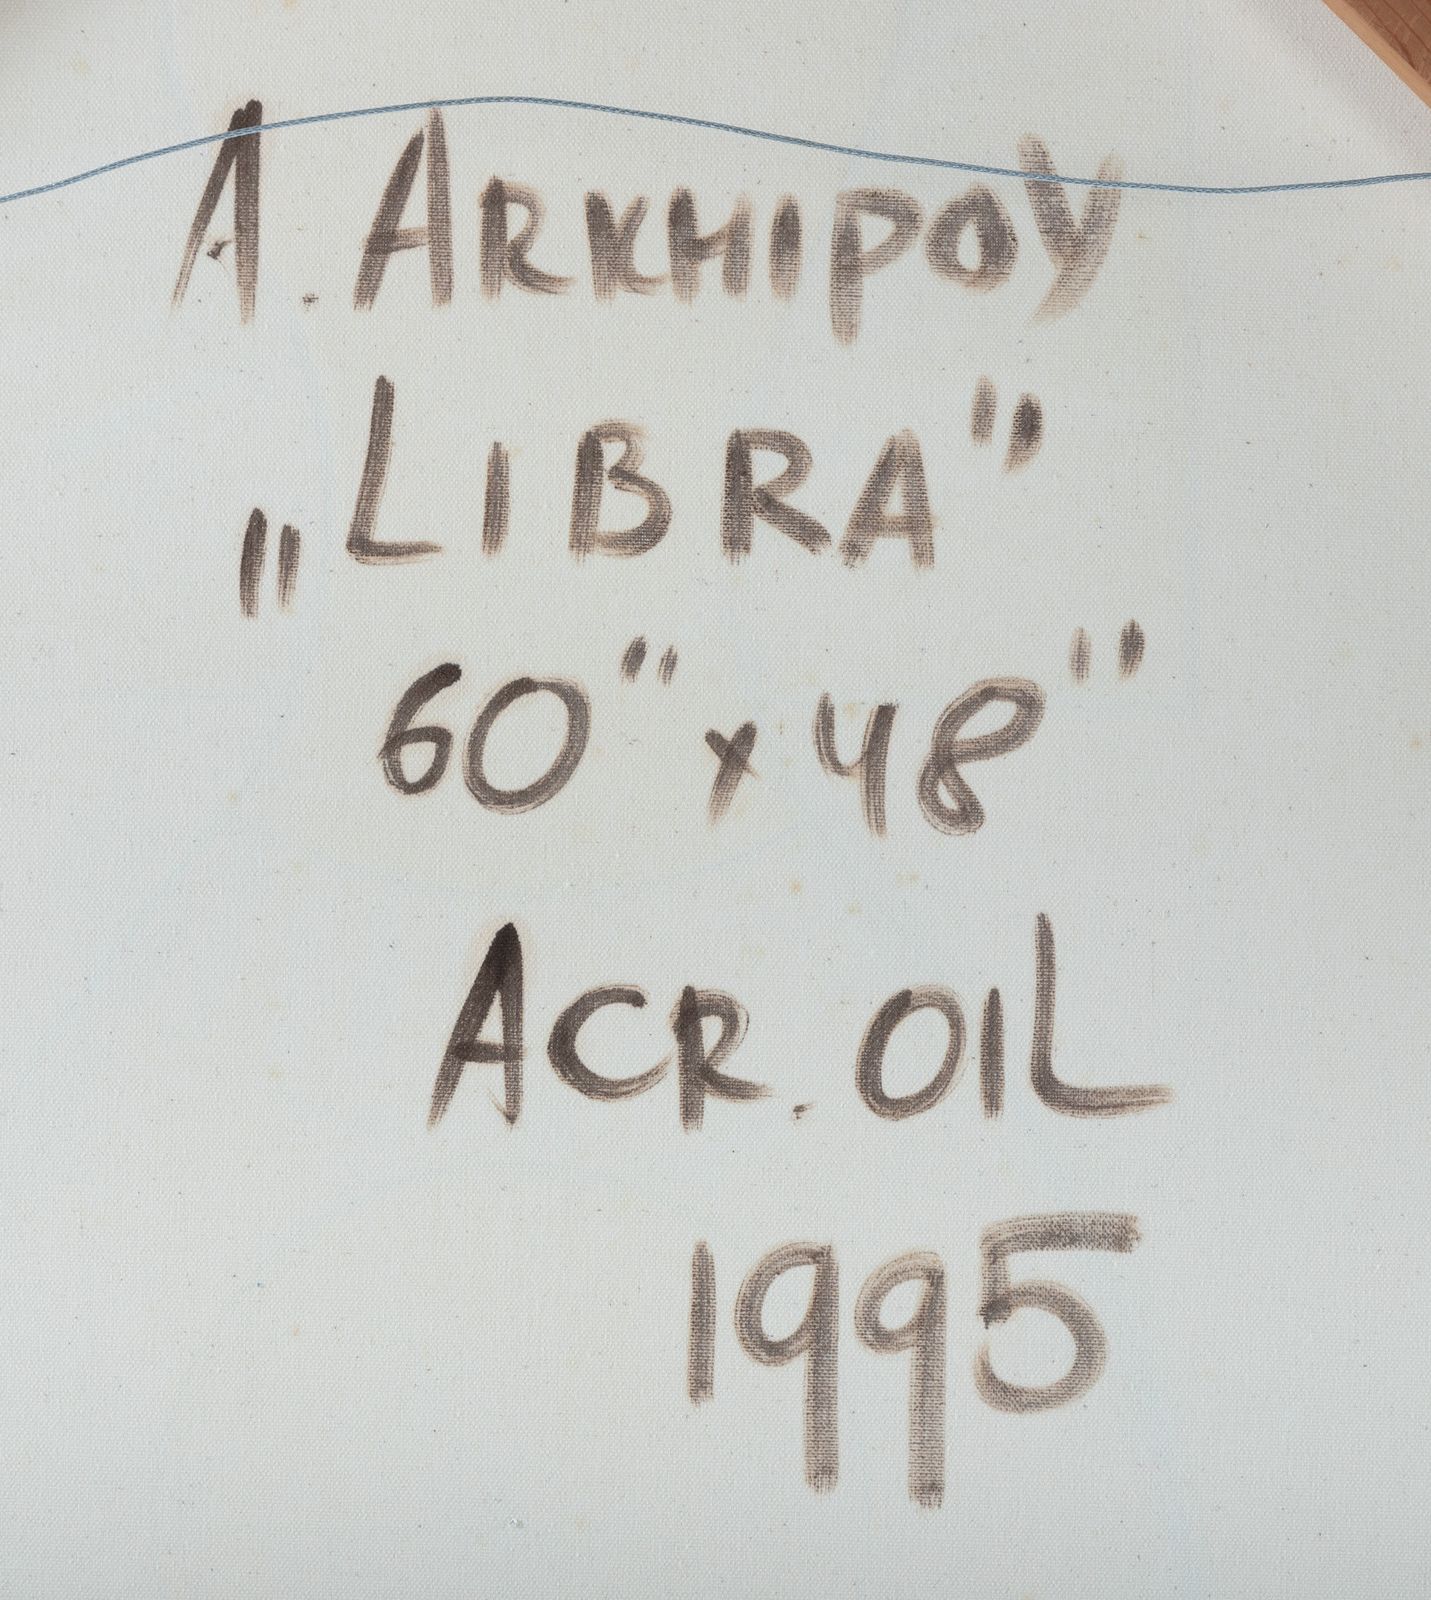 A. ARKHIPOV
„LIBRA"
60" x 48"
ACR. OIL
1995